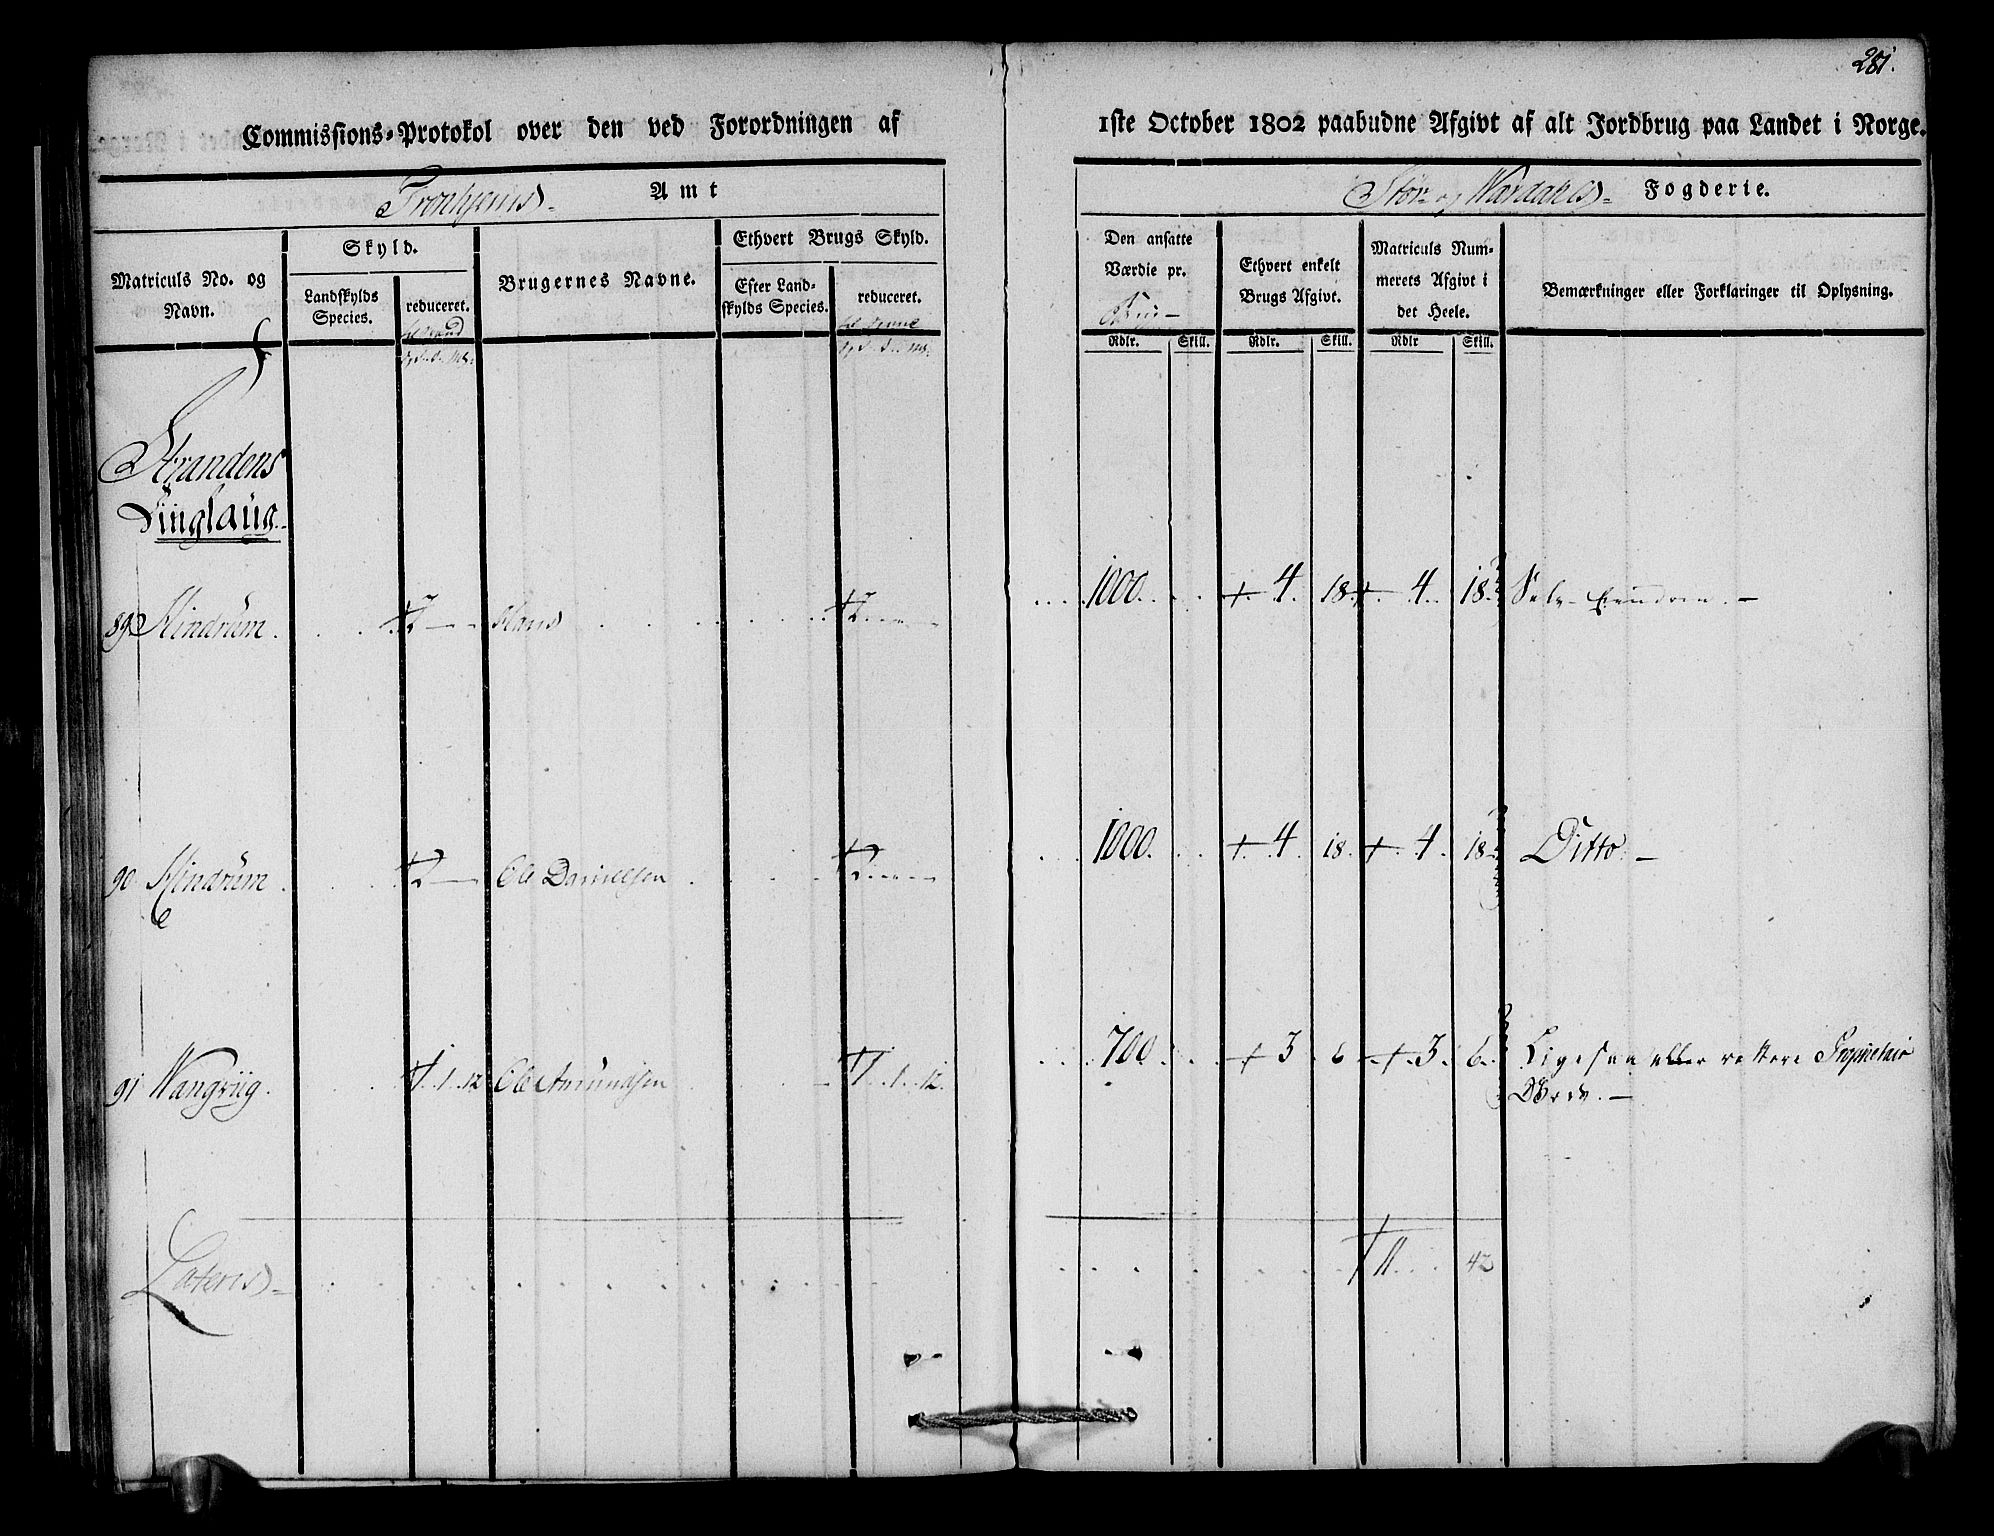 281.
Commissions-Protokol over den ved Forordningen af 1ste October 1802 paabudne Afgivt af alt Jordbrug paa Landet i Norge.
Tronhjems Amt
Stør- og Wærdahls Fogderie.
Matriculs No. og Navn.
Skyld.
Landskylds Species.
reduceret.
Brugernes Navne.
Ethvert Brugs Skyld.
Efter Landskylds Species.
reduceret.
Den ansatte Værdie pr.
Rdlr. Skill.
Ethvert enkelt Brugs Afgivt.
Rdlr. Skill.
Matriculs Nummerets Afgivt i det Heele.
Rdlr Skill.
Bemærkninger eller Forklaringer til Oplysning.
Strandens
Tinglaug
89 Hindrüm 2 Hans 2 1000 4 18 4 18 Selv-Eiendom
90 Hindrüm 2 Ole Danielsen 2 1000 4 18 4 18 Ditto
91 Wangviig 1 1 12 Ole Amundsen 1 1 12 700 3 6 3 6 Ligesaa eller rettere Proprietair
Lateris 11 42